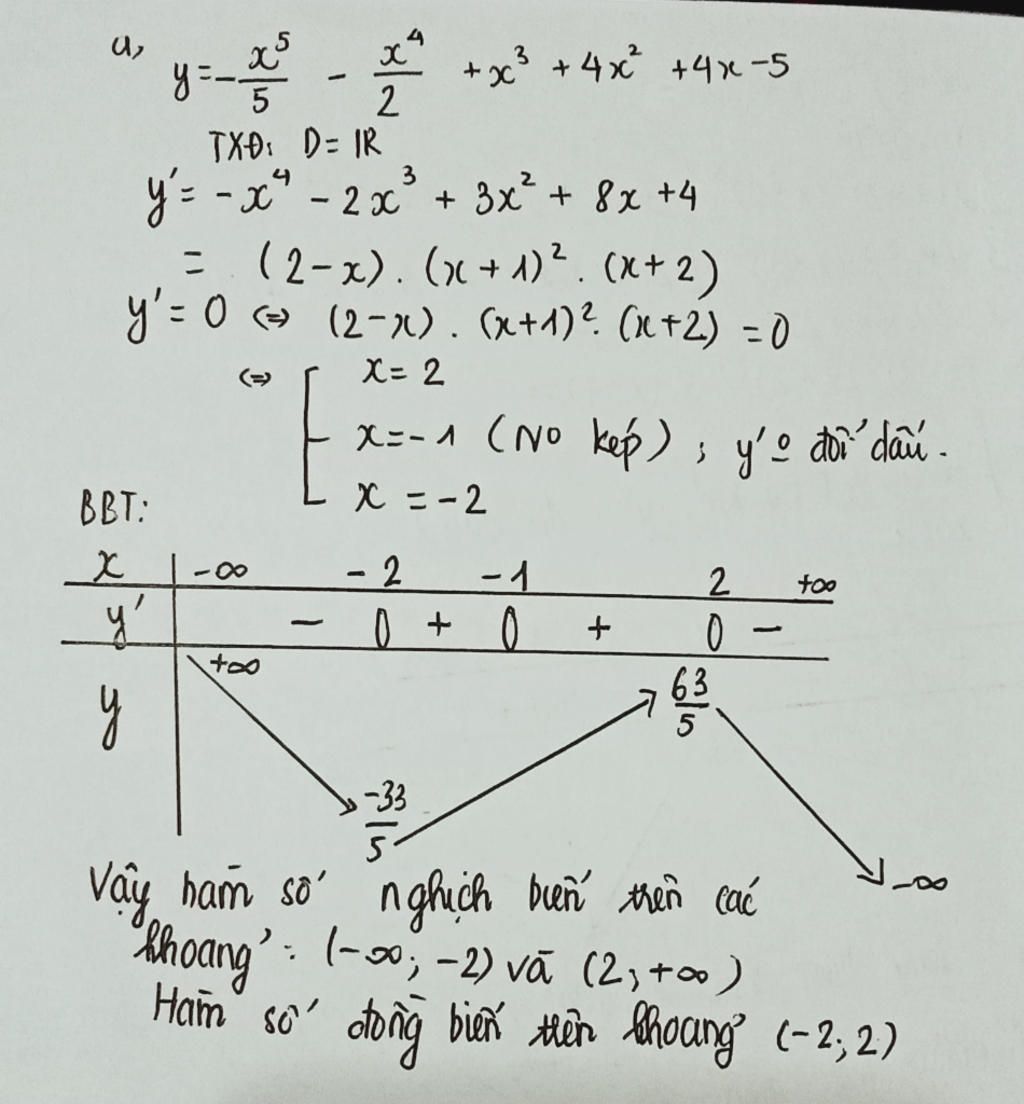 a, y = -x⁵/5 - x⁴/2 + x³ + 4x² + 4x - 5
TXĐ: D = ℝ
y' = -x⁴ - 2x³ + 3x² + 8x + 4
= (2-x). (x+1)². (x+2)
y' = 0 ⇔ (2-x). (x+1)². (x+2) = 0
⇔ [ x = 2
x = -1 (No kép) ; y' o đổi dấu.
x = -2
BBT:
x -∞ -2 -1 2 +∞
y' - 0 + 0 + 0 -
y +∞ -33/5 63/5 -∞
Vậy hàm số nghịch biến trên các
khoảng : (-∞; -2) và (2; +∞)
Hàm số đồng biến trên khoảng (-2; 2)